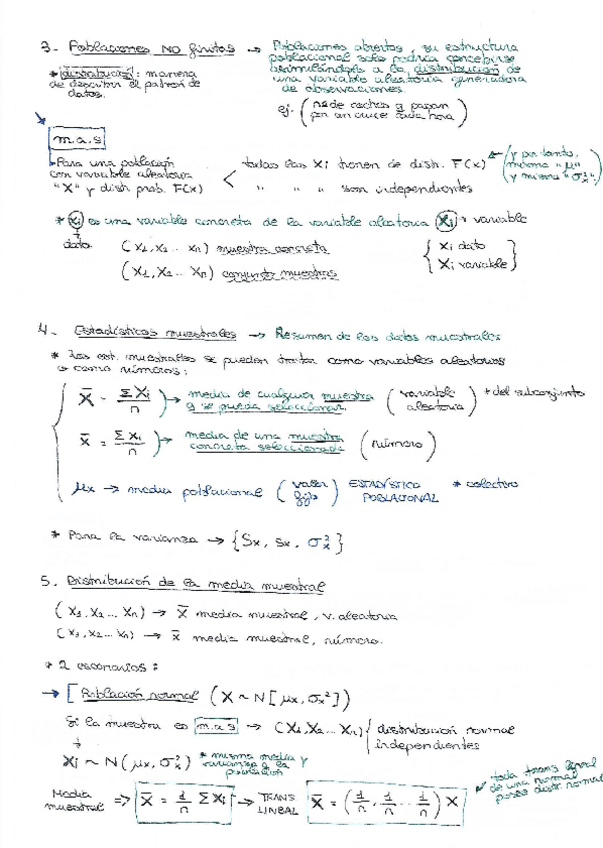 3- Poblaciones NO finitas → Poblaciones abiertas, su estructura
poblacional solo podría concebirse
asimilándola a la distribución de
una variable aleatoria generadora
de observaciones.
* distribución: manera
de describir el patrón de
datos.
ej. (nº de coches q pasan
por un cruce cada hora)
m.a.s
Para una población
con variable aleatoria
"X" y distr prob. F(x)
todas las Xi tienen de distr. F(x)
" " " son independientes
y por tanto,
misma "μ"
y misma "σ²x"
* xi es una variable concreta de la variable aleatoria Xi → variable
dato
(x1, x2 ... xn) muestra concreta
(X1, X2 ... Xn) conjunto muestras
xi dato
Xi variable
4- Estadísticos muestrales → Resumen de los datos muestrales
* Los est. muestrales se pueden tratar como variables aleatorias
o como números:
X̄ = ΣXi/n → media de cualquier muestra
q se pueda seleccionar (variable aleatoria) * del subconjunto
x̄ = Σxi/n → media de una muestra
concreta seleccionada (número)
μx → media poblacional (valor fijo) ESTADÍSTICO
POBLACIONAL * colectivo
* Para la varianza → {Sx, sx, σ²x}
5. Distribución de la media muestral
(X1, X2 ... Xn) → X̄ media muestral, v. aleatoria
(x1, x2 ... xn) → x̄ media muestral, número.
* 2 escenarios:
→ [Población normal (X ~ N[μx, σx²])
Si la muestra es m.a.s → (X1, X2 ... Xn) { distribución normal
independientes
Xi ~ N(μx, σ²x) * misma media y
varianza q la
población
Media
muestral => X̄ = 1/n ΣXi → TRANS.
LINEAL X̄ = (1/n, 1/n ... 1/n) X
toda trans lineal
de una normal
posee distr. normal